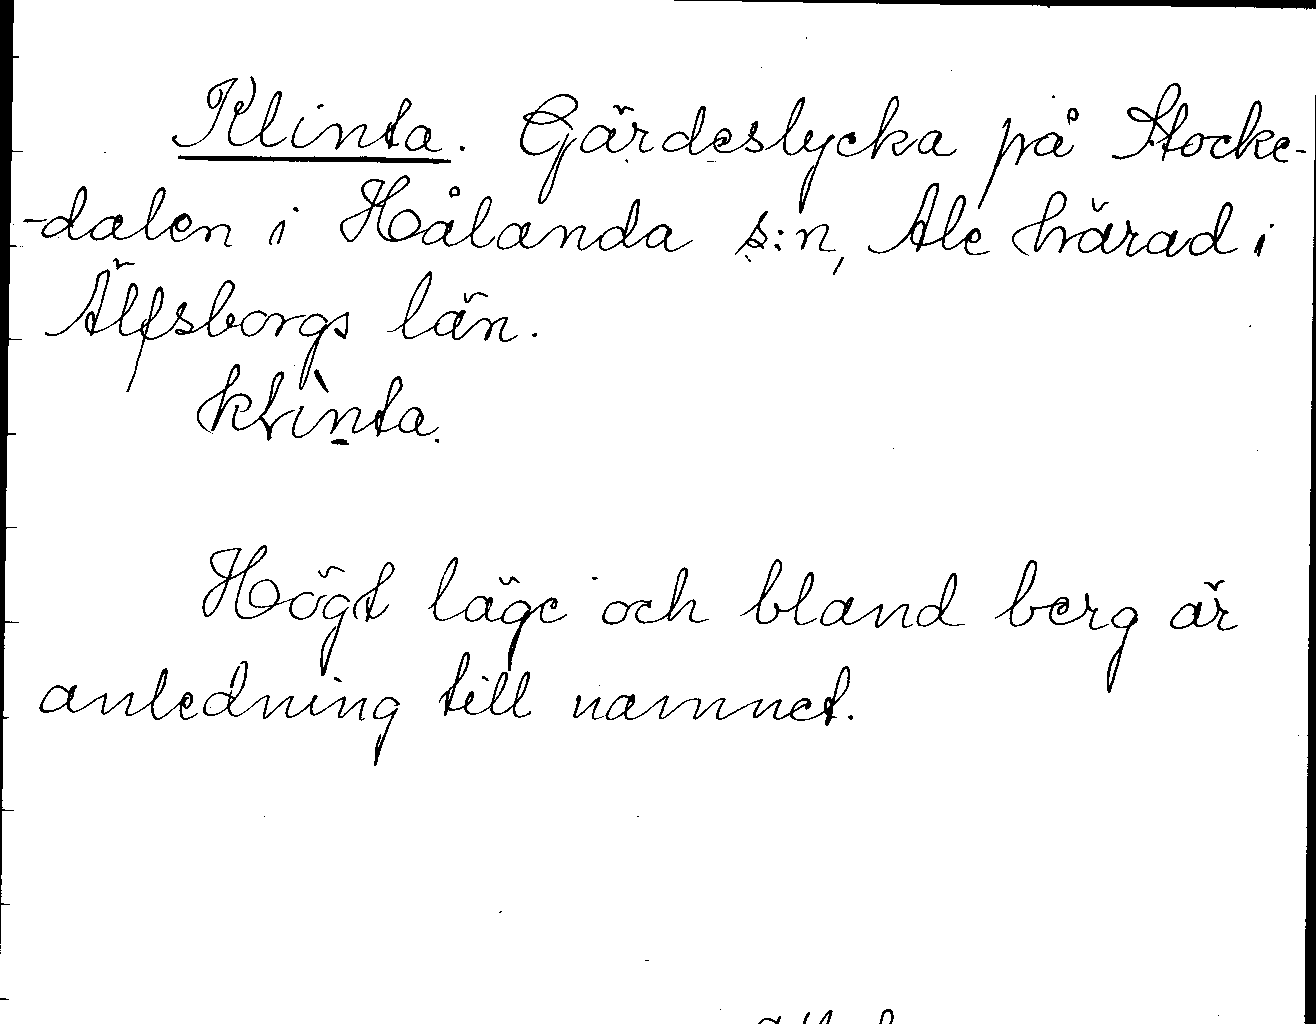 Klinta. Gärdeslycka på Stocke-
-dalen i Hålanda s:n, Ale härad i
Älfsborgs län.
klìnta.
Högt läge och bland berg är
anledning till namnet.